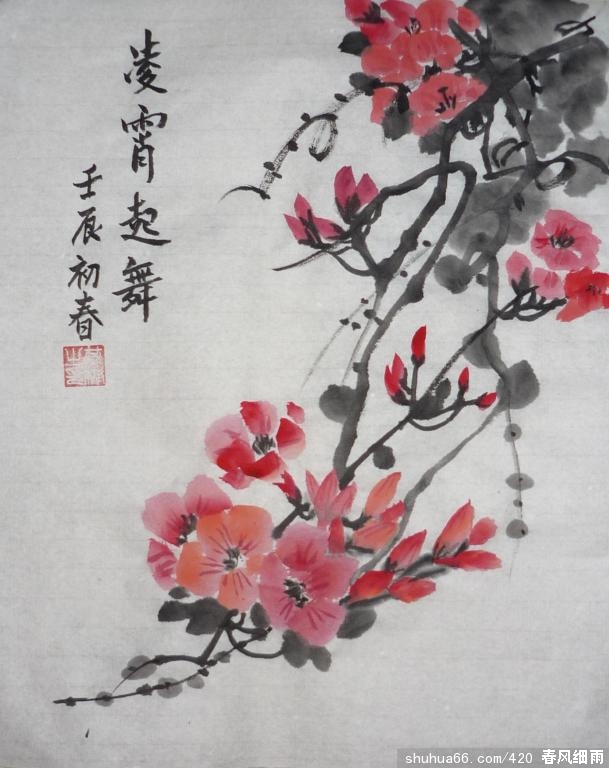 凌霄起舞
壬辰初春
shuhua66.com/420 春风细雨